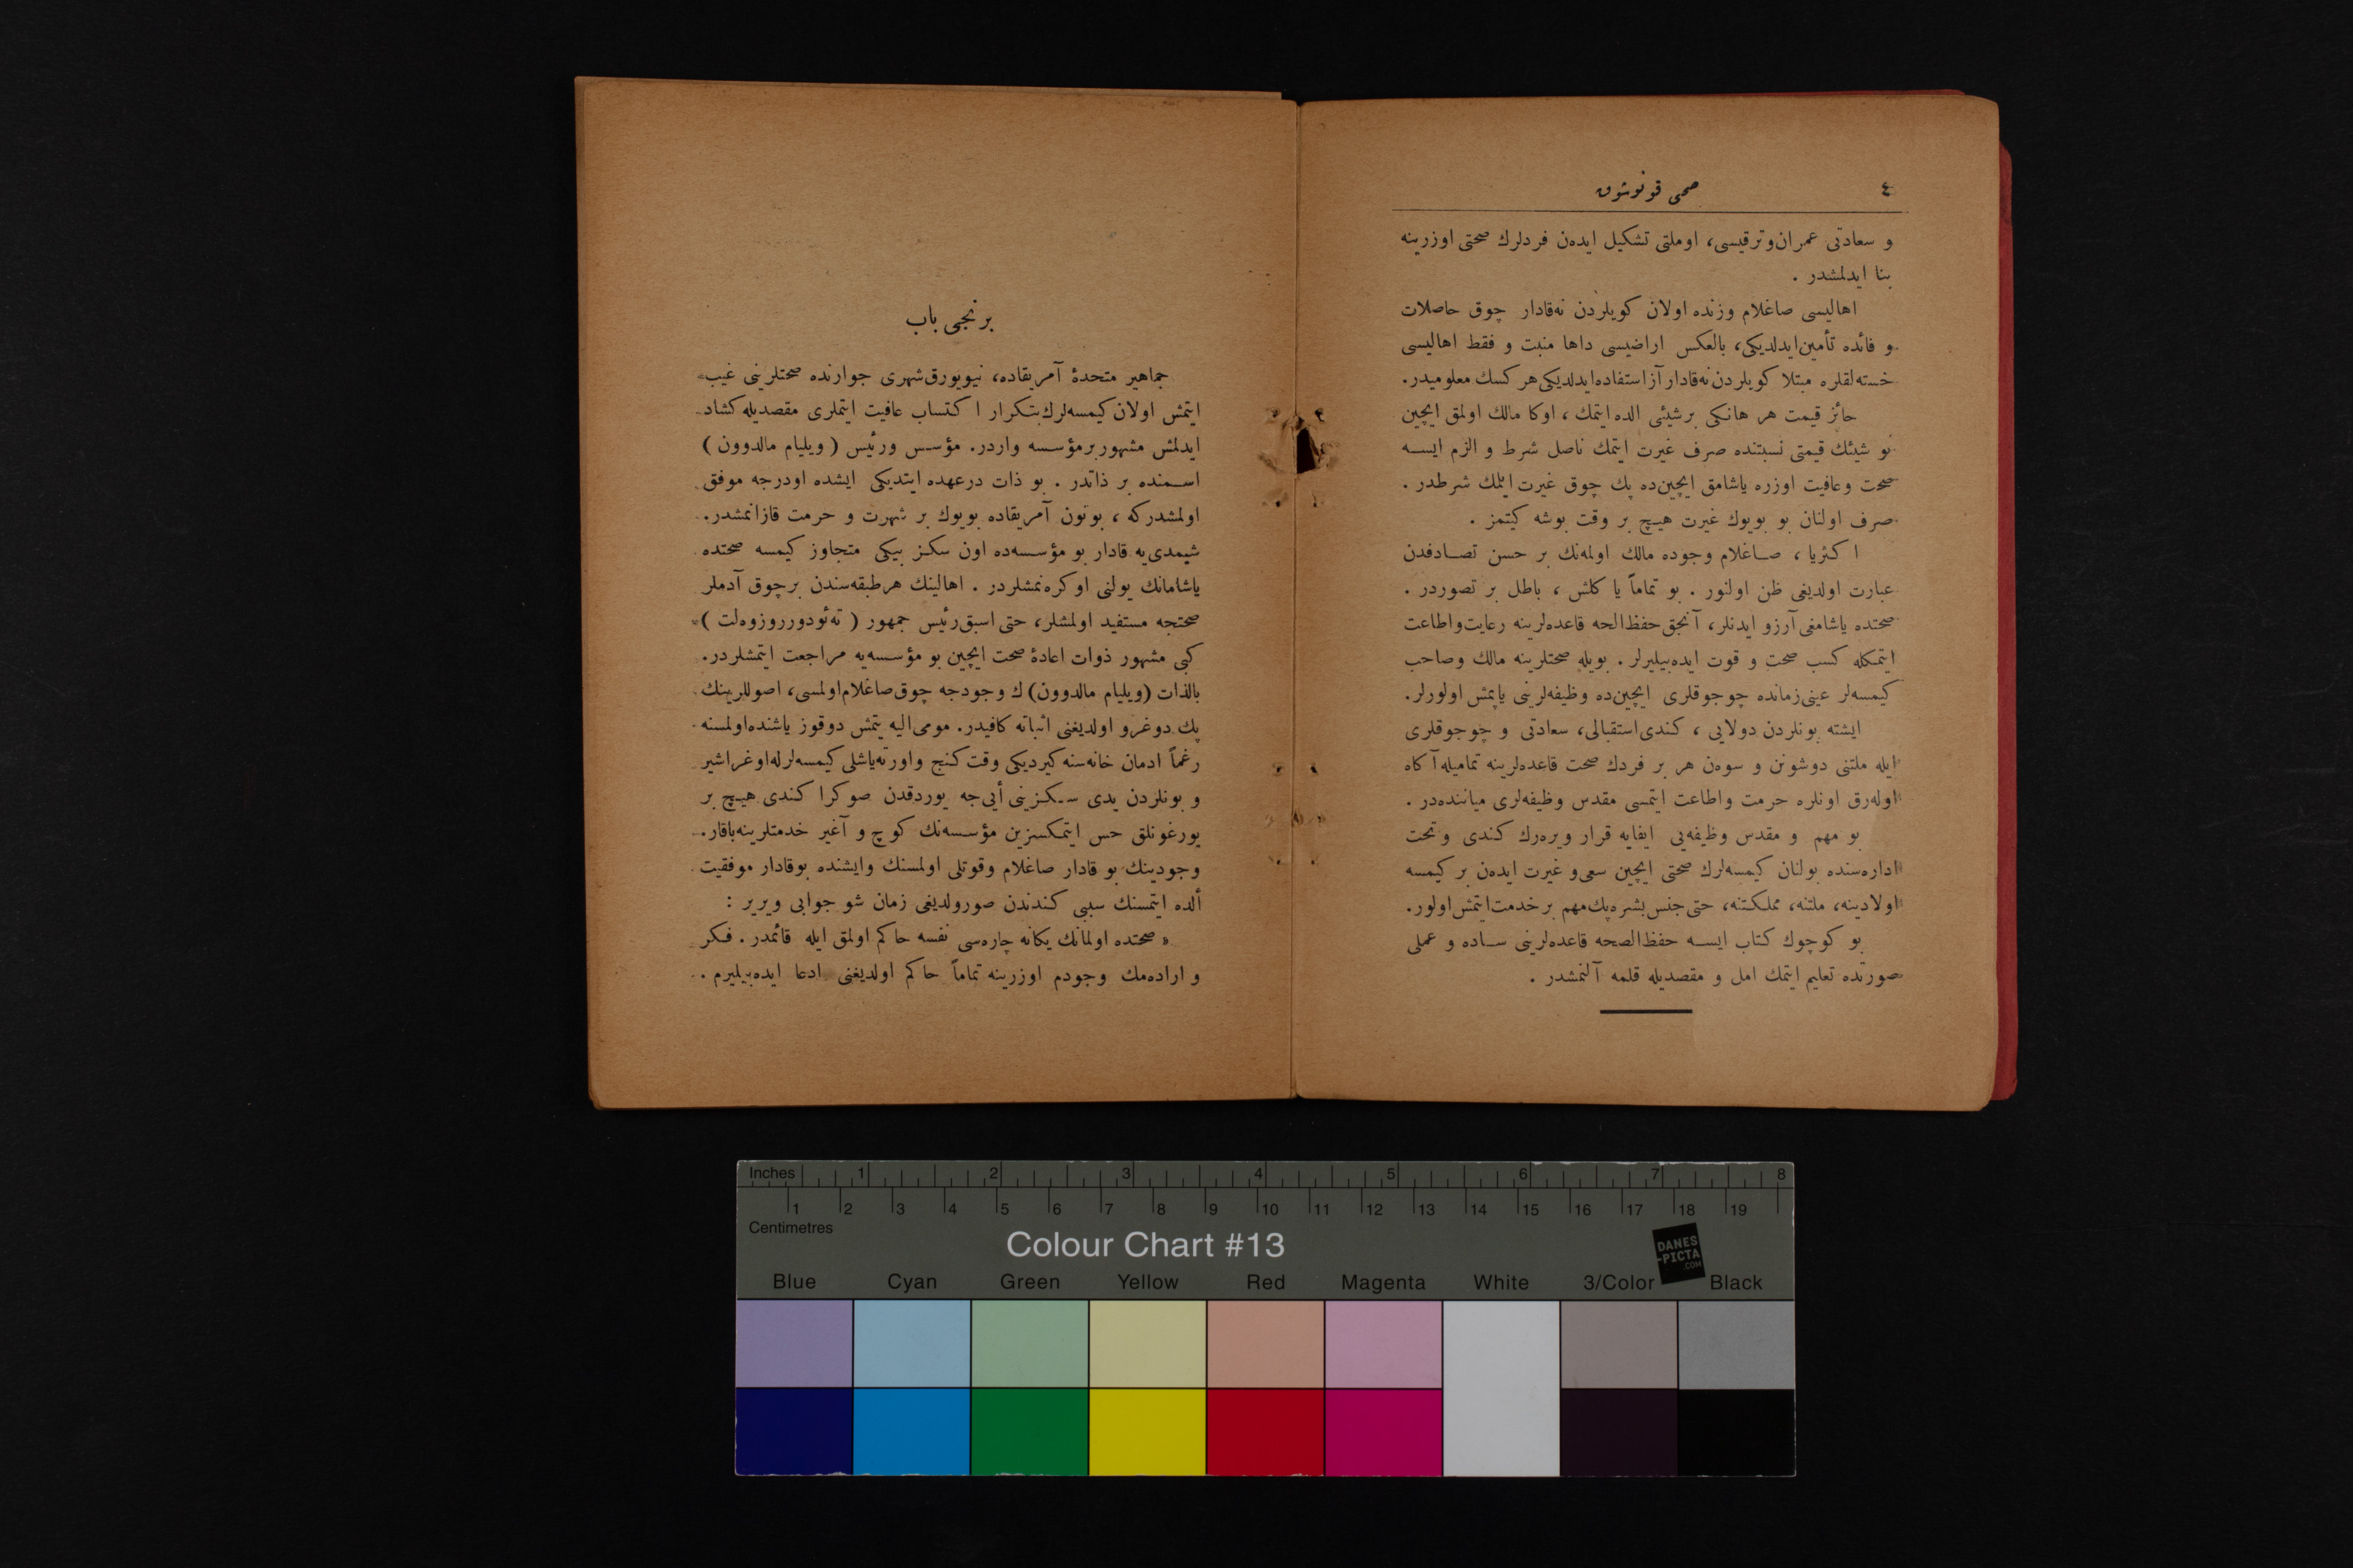 ٤
صحی قونوشوق
و سعادتی عمران وترقیسی، اوملتی تشکیل ایده‌ن فردلرك صحتی اوزرینه
بنا ایدلمشدر .
اهالیسی صاغلام وزنده اولان کویلردن نه‌قادار چوق حاصلات
و فائده تأمین ایدلدیکی، بالعکس اراضیسی داها منبت و فقط اهالیسی
خسته‌لقلره مبتلا کویلردن نه‌قادار آز استفاده ایدلدیکی هر کسك معلومیدر.
حائز قیمت هر هانکی برشیئی الده ایتمك ، اوکا مالك اولمق ایچین
بو شیئك قیمتی نسبتنده صرف غیرت ایتمك ناصل شرط و الزم ایسه
صحت وعافیت اوزره یاشامق ایچین‌ده پك چوق غیرت ایتمك شرطدر .
صرف اولنان بو بویوك غیرت هیچ بر وقت بوشه کیتمز .
اکثریا ، صاغلام وجوده مالك اولمه‌نك بر حسن تصادفدن
عبارت اولدیغی ظن اولنور . بو تماماً یاكلش ، باطل بر تصوردر .
صحتده یاشامغی آرزو ایدنلر، آنجق حفظ الحه قاعده‌لرینه رعایت واطاعت
ایتمکله کسب صحت و قوت ایده‌بیلیرلر . بویله صحتلرینه مالك وصاحب
کیمسه‌لر عینی زمانده چوجوقلری ایچین‌ده وظیفه‌لرینی یاپمش اولورلر.
ایشته بونلردن دولایی ، کندی استقبالی، سعادتی و چوجوقلری
ایله ملتنی دوشونن و سوه‌ن هر بر فردك صحت قاعده‌لرینه تمامیله آکاه
اوله‌رق اونلره حرمت واطاعت ایتمسی مقدس وظیفه‌لری میاننده‌در .
بو مهم و مقدس وظیفه‌یی ایفایه قرار ویره‌رك کندی و تحت
اداره‌سنده بولنان کیمسه‌لرك صحتی ایچین سعی و غیرت ایده‌ن بر کیمسه
اولادینه، ملتنه، مملکتنه، حتی جنس بشره پك مهم بر خدمت ایتمش اولور.
بو کوچوك کتاب ایسه حفظ الصحه قاعده‌لرینی ساده و عملی
صورتده تعلیم ایتمك امل و مقصدیله قلمه آلنمشدر .
برنجی باب
جماهیر متحدۀ آمریقاده، نیویورق شهری جوارنده صحتلرینی غیب
ایتمش اولان کیمسه‌لرك بتکرار اکتساب عافیت ایتملری مقصدیله کشاد
ایدلمش مشهور بر مؤسسه واردر. مؤسس ورئیس ( ویلیام مالدوون )
اسمنده بر ذاتدر . بو ذات درعهده ایتدیکی ایشده اودرجه موفق
اولمشدرکه ، بوتون آمریقاده بویوك بر شهرت و حرمت قازانمشدر.
شیمدی‌یه قادار بو مؤسسه‌ده اون سکز بیکی متجاوز کیمسه صحتده
یاشامانك یولنی اوکره‌نمشلردر . اهالینك هر طبقه‌سندن برچوق آدملر
صحتجه مستفید اولمشلر، حتی اسبق رئیس جمهور ( ته‌ئودور روزوه‌لت )
کبی مشهور ذوات اعادۀ صحت ایچین بو مؤسسه‌یه مراجعت ایتمشلردر.
بالذات (ویلیام مالدوون) ك وجودجه چوق صاغلام اولمسی، اصوللرینك
پك دوغرو اولدیغنی اثباته کافیدر. مومی الیه یتمش دوقوز یاشنده اولمسنه
رغماً ادمان خانه‌سنه کیردیکی وقت کنج واورته‌یاشلی کیمسه‌لرله اوغراشیر
و بونلردن یدی سکزینی أییجه یوردقدن صوکرا کندی هیچ بر
یورغونلق حس ایتمکسزین مؤسسه‌نك کوچ و آغیر خدمتلرینه باقار.
وجودینك بو قادار صاغلام وقوتلی اولمسنك وایشنده بوقادار موفقیت
ألده ایتمسنك سببی کندندن صورولدیغی زمان شو جوابی ویریر :
« صحتده اولمانك یکانه چاره‌سی نفسه حاکم اولمق ایله قائمدر . فکر
و اراده‌مك وجودم اوزرینه تماماً حاکم اولدیغنی ادعا ایده‌بیلیرم .
Inches 1 2 3 4 5 6 7 8
1 2 3 4 5 6 7 8 9 10 11 12 13 14 15 16 17 18 19
Centimetres
Colour Chart #13
DANES
-PICTA
.COM
Blue Cyan Green Yellow Red Magenta White 3/Color Black